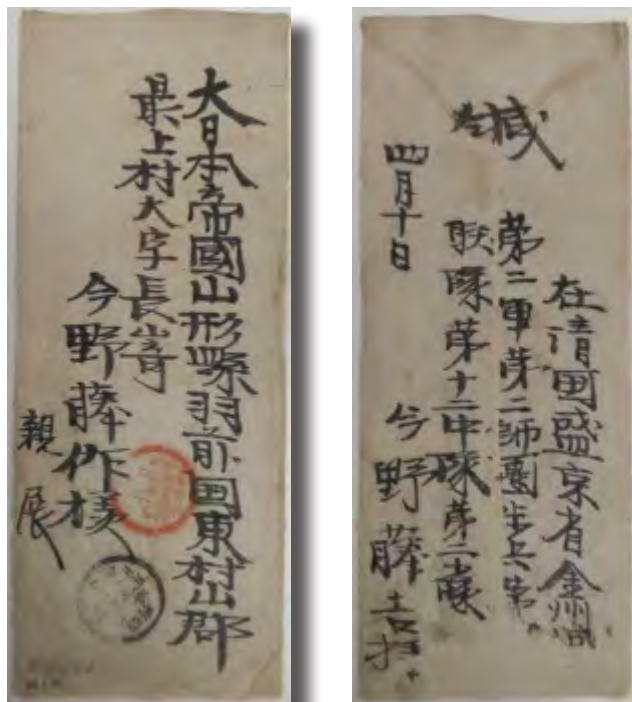 大日本帝國山形縣羽前国東村山郡
最上村大字長崎
今野藤作様
親展
緘
在清国盛京省金州城
第二軍第二師團歩兵第
隊第十二中隊第二小隊
今野藤吉
四月十日